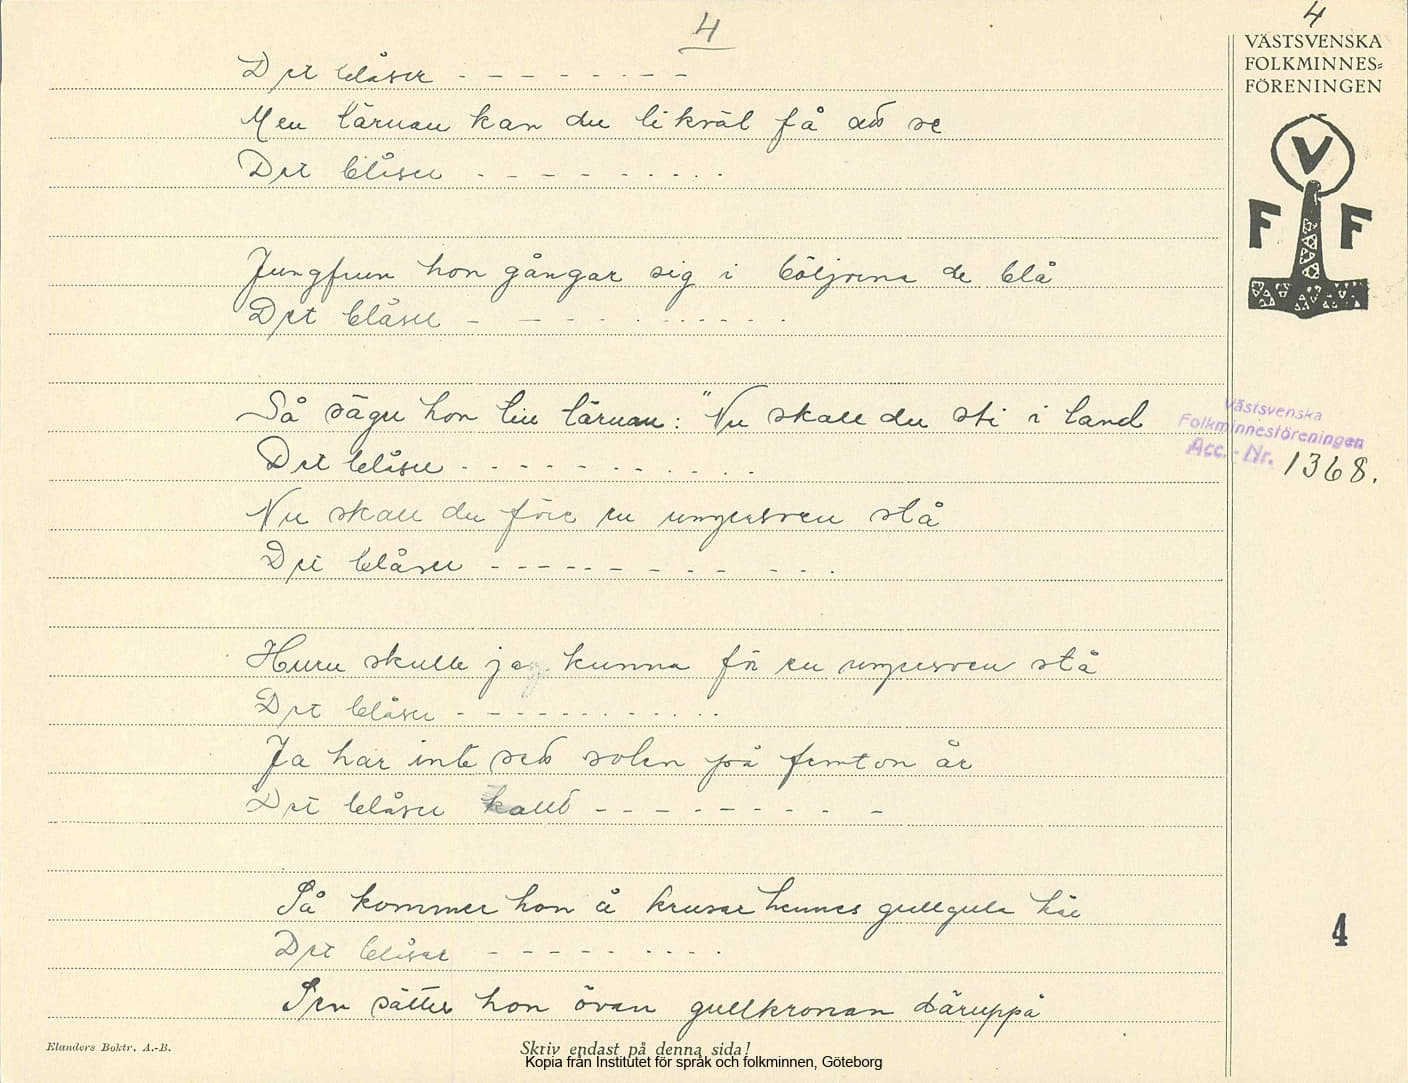 4
4
VÄSTSVENSKA
FOLKMINNES=
FÖRENINGEN
V
F F
Det blåser - - - - - - - -
Men tärnan kan du likväl få se
Det blåser - - - - - - - - -
Jungfrun hon gångar sig i böljorna de blå
Det blåser - - - - - - - - - -
Så säger hon till tärnan: "Nu skall du sti i land
Det blåser - - - - - - - - - - -
Västsvenska
Folkminnesföreningen
Acc. - Nr. 1368.
Nu skall du före en ungersven stå
Det blåser - - - - - - - - - - - -
Huru skulle jag kunna för en ungersven stå
Det blåser - - - - - - - - - - -
Ja har inte sett solen på femton år
Det blåser kallt - - - - - - - - -
Så kommer hon å krusar hennes gullgula hår
Det blåser - - - - - - - - -
Sen sätter hon övan gullkronan däruppå
4
Elanders Boktr. A.-B.
Skriv endast på denna sida!
Kopia från Institutet för språk och folkminnen, Göteborg